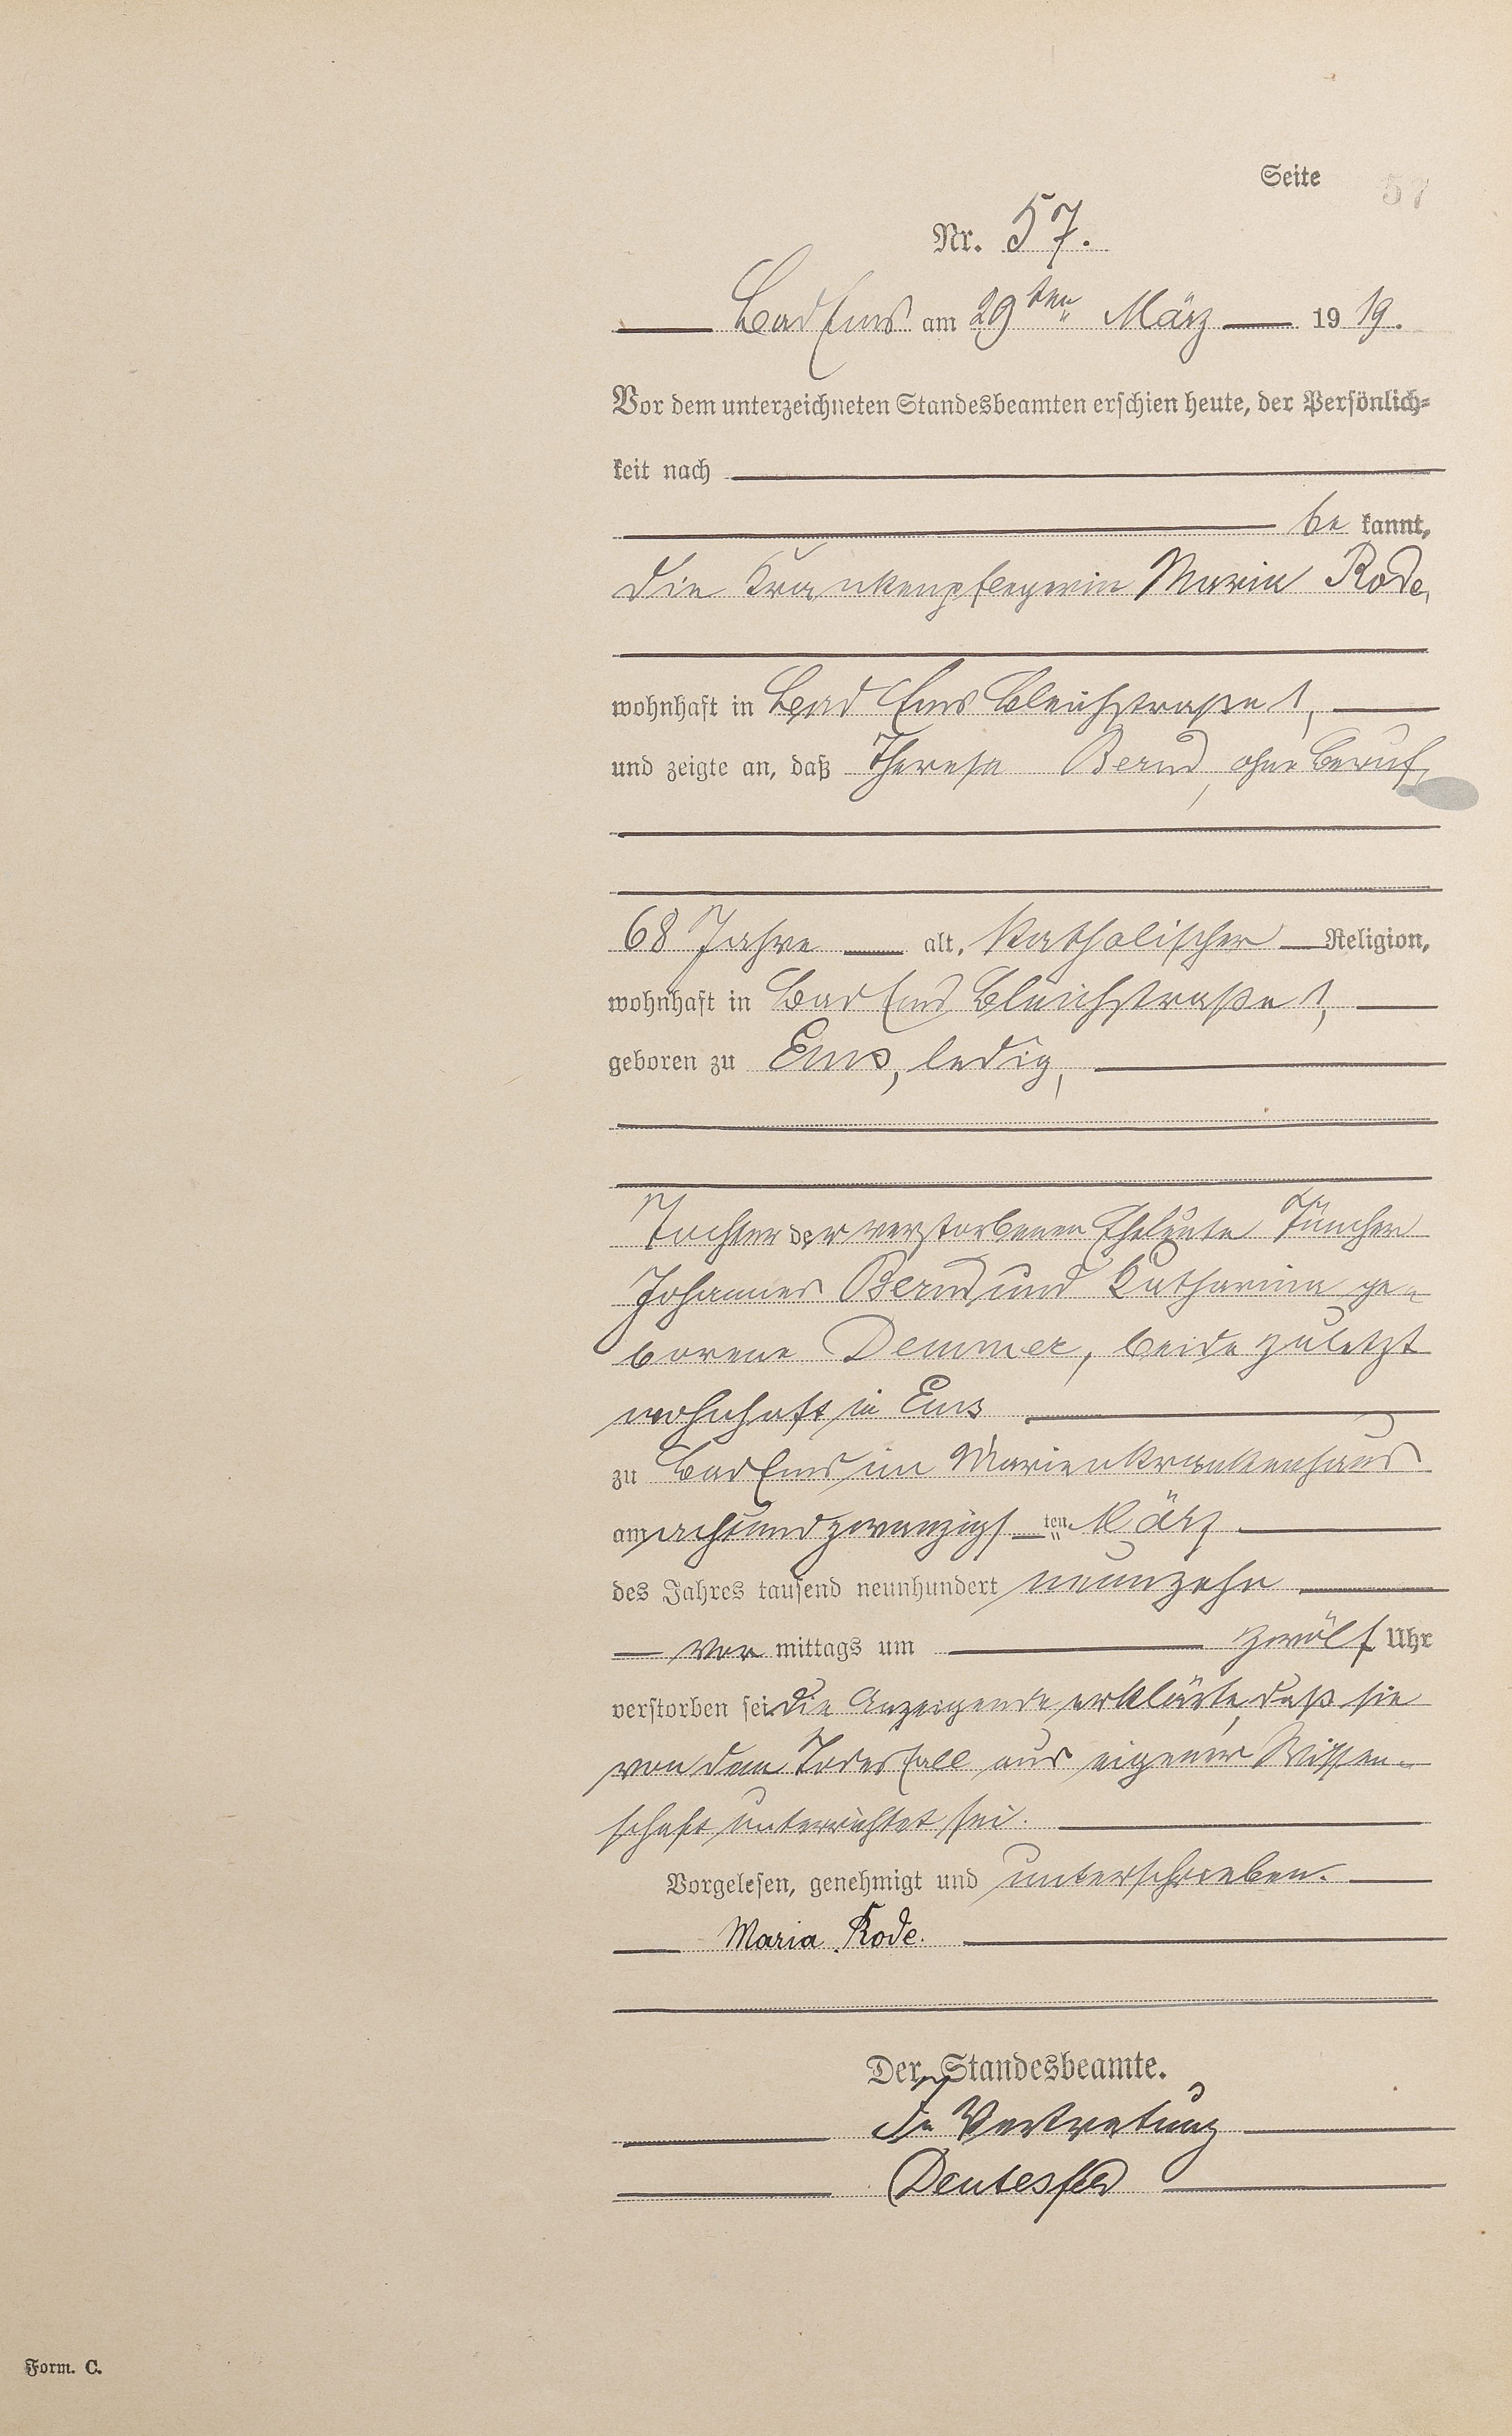 Seite 57
Nr. 57.
Bad Ems am 29ten März 1919.
Vor dem unterzeichneten Standesbeamten erschien heute, der Persönlich-
keit nach
bekannt,
die Krankenpflegerin Maria Rode,
wohnhaft in Bad Ems Bleichstraße 1,
und zeigte an, daß Therese Bernd, ohne Beruf,
68 Jahre alt, katholischer Religion,
wohnhaft in Bad Ems Bleichstraße 1,
geboren zu Ems, ledig,
Tochter der verstorbenen Eheleute Tüncher
Johannes Bernd und Katharina ge-
borene Demmer, beide zuletzt
wohnhaft in Ems
zu Bad Ems im Marienkrankenhaus
am achtundzwanzigsten März
des Jahres tausend neunhundert neunzehn
vor mittags um zwölf Uhr
verstorben sei. Die Anzeigende erklärte, daß sie
von dem Todesfall aus eigener Wissen-
schaft unterrichtet sei.
Vorgelesen, genehmigt und unterschrieben.
Maria Rode.
Der Standesbeamte.
In Vertretung
Deutesfeld
Form. C.